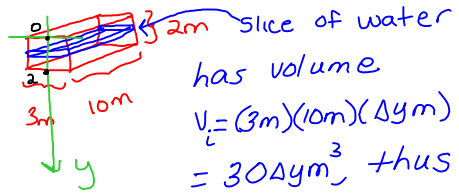 0
2
3m
10m
2m
y
slice of water
has volume
Vᵢ = (3m)(10m)(Δy m)
= 30Δy m³, thus